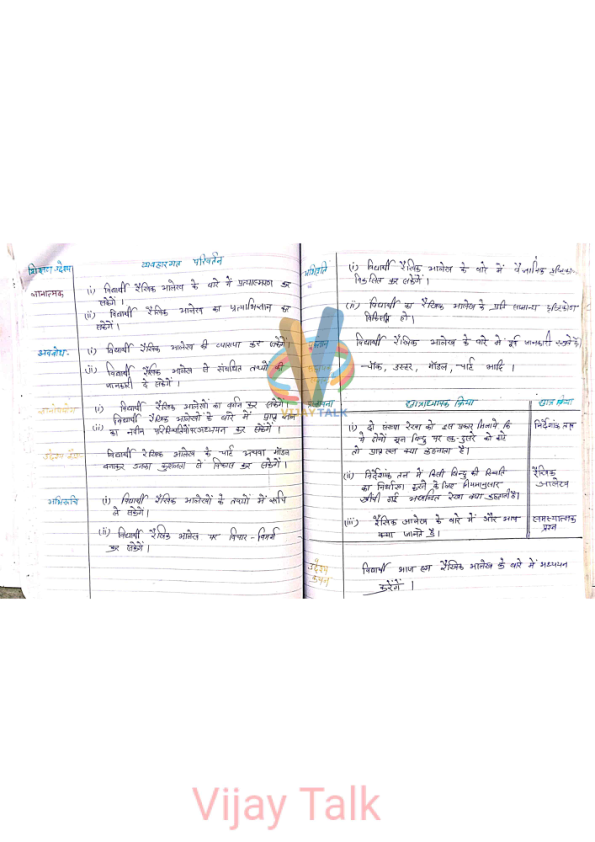 शिक्षण उद्देश्य
व्यवहारगत परिवर्तन
ज्ञानात्मक
(i) विद्यार्थी रैखिक आलेख के बारे में प्रत्यास्मरण कर
सकेंगे।
(ii) विद्यार्थी रैखिक आलेख का प्रत्याभिज्ञान कर
सकेंगे।
अवबोध-
(i) विद्यार्थी रैखिक आलेख की व्याख्या कर सकेंगे।
(ii) विद्यार्थी रैखिक आलेख से संबंधित तथ्यों की
जानकारी दे सकेंगे।
(i) विद्यार्थी रैखिक आलेखों का वर्णन कर सकेंगे।
विद्यार्थी रैखिक आलेखों के बारे में प्राप्त ज्ञान
(ii) का नवीन परिस्थितियों में अध्ययन कर सकेंगे।
विद्यार्थी रैखिक आलेख के चार्ट अथवा मॉडल
बनाकर उनका कुशलता से विकास कर सकेंगे।
अभिरूचि
(i) विद्यार्थी रैखिक आलेखों के तथ्यों में रूचि
ले सकेंगे।
(ii) विद्यार्थी रैखिक आलेख पर विचार-विमर्श
कर सकेंगे।
अभिवृत्ति
(i) विद्यार्थी रैखिक आलेख के बारे में वैज्ञानिक
विकसित कर सकेंगे।
(ii) विद्यार्थी का रैखिक आलेख के प्रति सामान्य दृष्टिकोण
विद्यार्थी रैखिक आलेख के बारे में पूर्व जानकारी रखते हैं।
चॉक, डस्टर, मॉडल, चार्ट आदि।
छात्राध्यापक क्रिया
छात्र क्रिया
(i) दो संख्या रेखा को इस प्रकार मिलाये कि
ये दोनों शून्य बिन्दु पर एक-दूसरे को काटे
तो प्राप्त तल क्या कहलाता है।
निर्देशांक तल
(ii) निर्देशांक तल में किसी बिन्दु की स्थिति
का निर्धारण करने के लिए नियमानुसार
खींची गई रेखा क्या कहलाती है।
रैखिक
आलेख
(iii) रैखिक आलेख के बारे में और आप
क्या जानते हैं।
समस्यात्मक
प्रश्न
उद्देश्य
कथन
विद्यार्थी आज हम रैखिक आलेख के बारे में अध्ययन
करेंगे।
VIJAY TALK
Vijay Talk